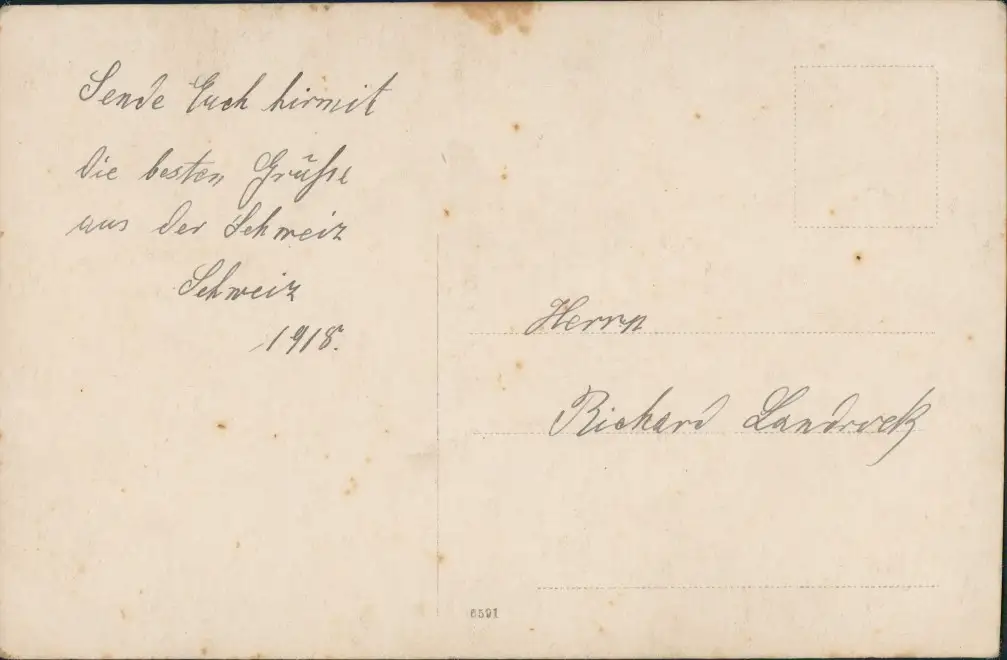 Sende Euch hirmit
die besten Grüße
aus der Schweiz
Schweiz
1918.
Herrn
Richard Landrock
6591